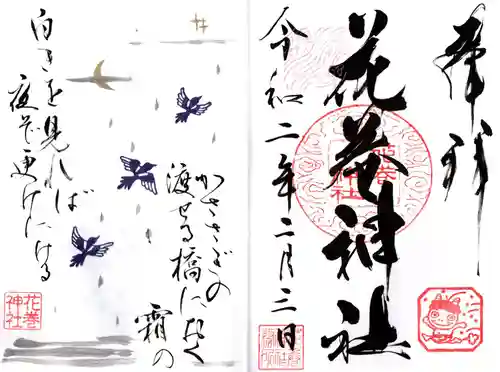 奉拝
花巻神社
令和二年二月三日
かささぎの
渡せる橋に置く
霜の
白きを見れば
夜ぞ更けにける
花巻
神社